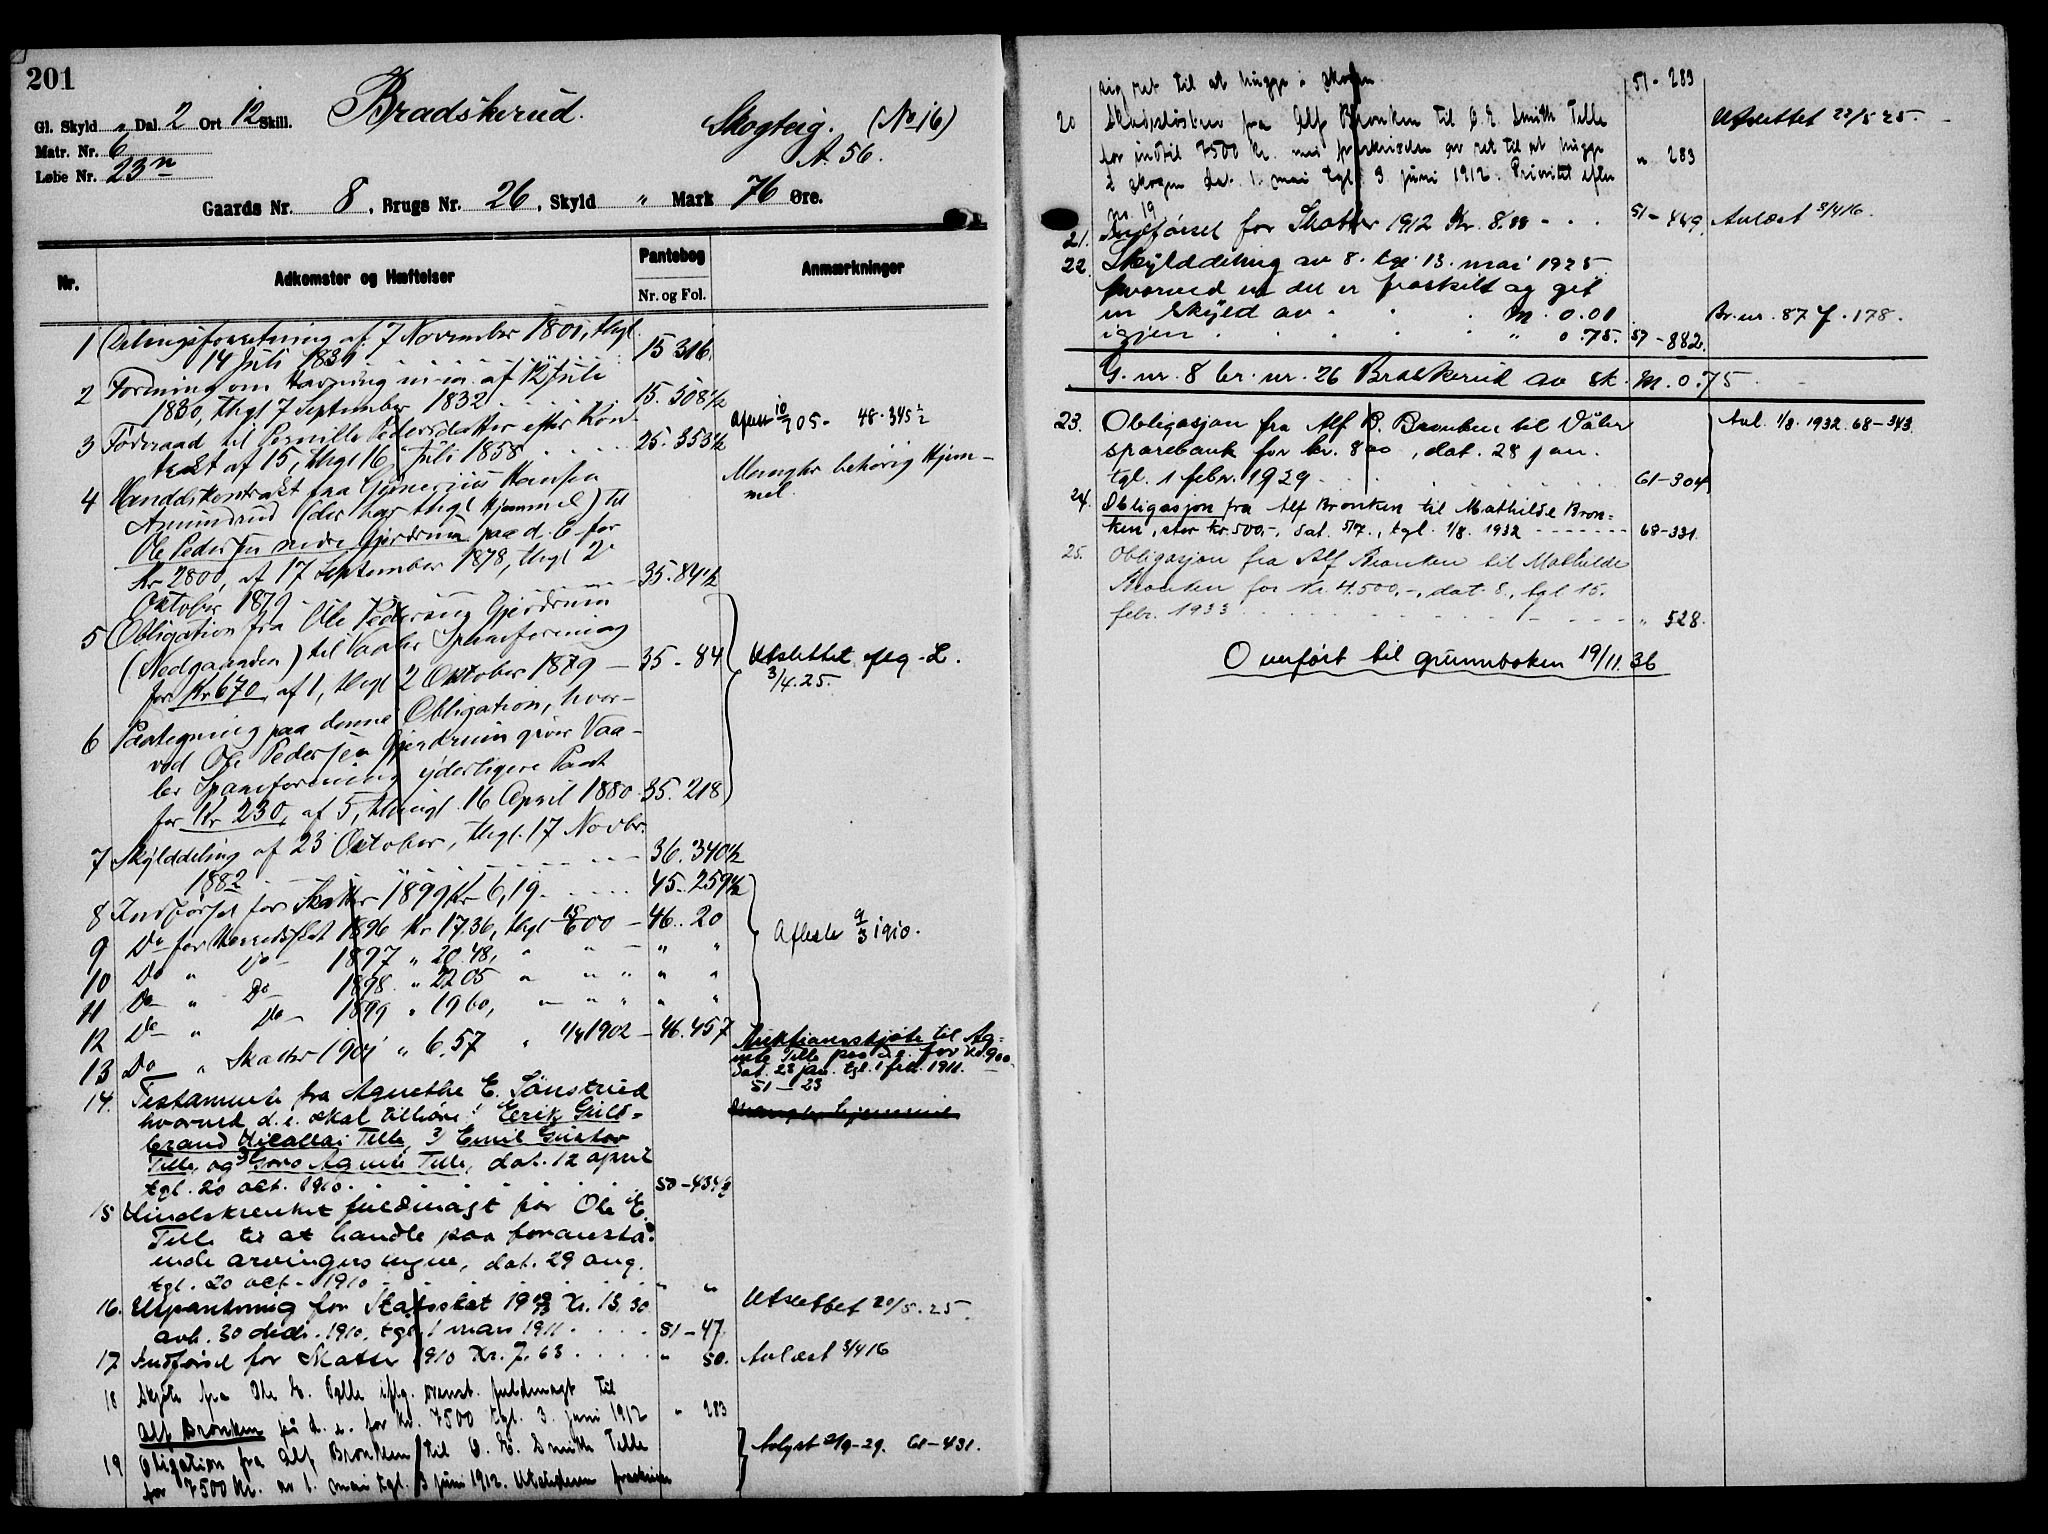 201
Gl. Skyld " Dal. 2 Ort 12 Skill.
Bradskerud.
Skogteig. (No 16)
A. 56.
Matr. Nr. 6
Løbe Nr. 23n
Gaards Nr. 8, Brugs Nr. 26, Skyld " Mark 76 Øre.
Nr.
Adkomster og Hæftelser
Pantebog
Nr. og Fol.
Anmærkninger
1 Delingsforretning af 7 November 1801, thgl.
14 Juli 1831 15 316.
2 Forening om Havning m. m. af 12 Juli
1830, thgl 7 September 1832 15. 508 1/2
3 Føderaad til Pernille Pedersdatter efter Kon-
trakt af 15, thgl 16 Juli 1858 25. 353 1/2
Aflæst 10/7 05. 48. 345 1/2
4 Mandskontrakt fra Gjønerius Hansen
Amundrud (der har thgl Hjemmel) til
Ole Pedersen nedre Gjerdrum paa d. E. for
Kr 2800, af 17 September 1878, thgl 2
Oktober 1879 35. 84 1/2
Mangler behørig Hjem-
mel.
5 Obligation fra Ole Pedersen Gjerdrum
(Nedgaarden) til Vaaler Spareforening
for Kr 670, af 1, thgl 2 Oktober 1879 — 35 - 84
Utslettet eflg. L.
3/4. 25.
6 Paategning paa denne Obligation, hvor-
ved Ole Pedersen Gjerdrum giver Vaa-
ler Spareforening yderligere Pant
for Kr 230, af 5, thingl. 16 April 1880 35. 218
7 Skylddeling af 23 Oktober, thgl. 17 Novbr.
1882 36. 340 1/2
8 Indførsel for Skatter 1899 Kr 6,19. 45. 259 1/2
9 Do for Herredsskat 1896 Kr 17.36, thgl 15/6 00 — 46. 20
10 Do " Do — 1897 " 20.48, " " " " "
11 Do " Do 1898 " 22 05 " " " " "
12 Do " Do — 1899 " 19 60, " " " " "
13 Do " Skatter 1901 " 6.57 " 1/4 1902 — 46. 457
Aflæst 9/3 1910.
Auktionsskjøte til Ag-
nete Telle paa d. e. for Kr 900
Dat. 23 jan. tgl. 1 feb. 1911.
51 — 23
14. Testamente fra Agnethe E. Sønstrud
hvorved d. e. skal tilhøre 1 Eerik Guld-
brand Nicallai Telle, 2) Emil Gustav
Telle, og 3) Goro Agnete Telle, dat. 12 april
tgl. 20 oct. 1910. 50 — 434 1/2
15 Uindskrenket fuldmagt for Ole E.
Telle til at handle paa foransta-
ende arvingers vegne, dat. 29 aug.
tgl. 20 oct. 1910 " "
16. Utpantning for Statsskat 1909/10 Kr. 13.30
avh. 30 decb. 1910, tgl. 1 mars 1911 51 — 47
Utslettet 20/5. 25
17 Indførsel for Skatter 1910 Kr. 7.63 " 50.
Avlæst 3/4 16
18 Skjøte fra Ole E. Telle iflg. ovenst. fuldmagt til
Alf Bronken på d. e. for Kr. 7500 tgl. 3. juni 1912 " 283
19 Obligation fra Alf Bronken til O. E. Smith Telle
for 7500 Kr. av 1. mai tgl. 3 juni 1912. Utstederen fraskriver
Avlyst 21/9-29. 61-431.
sig ret til at hugge i skogen. 51 - 283
20 Skadesløsbrev fra Alf Bronken til O. E. Smith Telle
for indtil 7500 Kr. med fraskrivelse av ret til at hugge
i skogen dat. 1. mai tgl. 3 juni 1912. Prioritet efter
no. 19
" 283
Utslettet 22/5 25.
21. Indførsel for Skatter 1912 Kr. 8.88 51 — 449.
Avlæst 3/4 16.
22. Skylddeling av 8. tgl 13. mai 1925
hvorved en del er fraskilt og git
en skyld av M. 0.01
Br. nr. 87 f. 178.
igjen " 0.75. 57 — 882.
G. nr. 8 br. nr. 26 Braskerud av sk. M. 0.75
23. Obligasjon fra Alf B. Bronken til Våler
sparebank for kr. 800, dat. 28 jan.
tgl. 1 febr. 1929 61 - 304
Avl. 1/8. 1932. 68 — 343.
24. Obligasjon fra Alf Bronken til Mathilde Bron-
ken, stor kr. 500,-, dat. 5/7., tgl. 1/8. 1932 68-331.
25. Obligasjon fra Alf Bronken til Mathilde
Bronken for kr. 4.500.-, dat. 8., tgl. 15.
febr. 1933 " 528.
Overført til grunnboken 19/11. 36